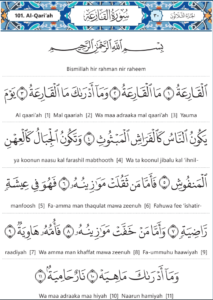 101. Al-Qari'ah سُورَةُ القَارِعَةِ ٣٠
بِسْمِ اللَّهِ الرَّحْمَٰنِ الرَّحِيمِ
Bismillahir rahman nir raheem
الْقَارِعَةُ ۝١ مَا الْقَارِعَةُ ۝٢ وَمَا أَدْرَاكَ مَا الْقَارِعَةُ ۝٣ يَوْمَ
Al qaari'ah [1] Mal qaariah [2] Wa maa adraaka mal qaari'ah [3] Yauma
يَكُونُ النَّاسُ كَالْفَرَاشِ الْمَبْثُوثِ ۝٤ وَتَكُونُ الْجِبَالُ كَالْعِهْنِ
ya koonun naasu kal farashil mabthooth [4] Wa ta koonul jibalu kal 'ihnil-
الْمَنْفُوشِ ۝٥ فَأَمَّا مَنْ ثَقُلَتْ مَوَازِينُهُ ۝٦ فَهُوَ فِي عِيشَةٍ
manfoosh [5] Fa-ammu man thaqulat mawa zeenuh [6] Fahuwa fee 'ishatir-
رَاضِيَةٍ ۝٧ وَأَمَّا مَنْ خَفَّتْ مَوَازِينُهُ ۝٨ فَأُمُّهُ هَاوِيَةٌ ۝٩
raadiyah [7] Wa amma man khaffat mawa zeenuh [8] Fa-ummuhu haawiyah [9]
وَمَا أَدْرَاكَ مَا هِيَهْ ۝١٠ نَارٌ حَامِيَةٌ ۝١١
Wa maa adraaka maa hiyah [10] Naarun hamiyah [11]